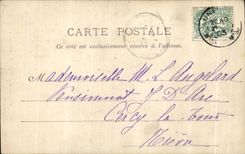 CARTE POSTALE
Ce côté est exclusivement réservé à l'adresse.
Mademoiselle M. L Angelard
Pensionnat J D'Arc
Cercy la tour
Nièvre